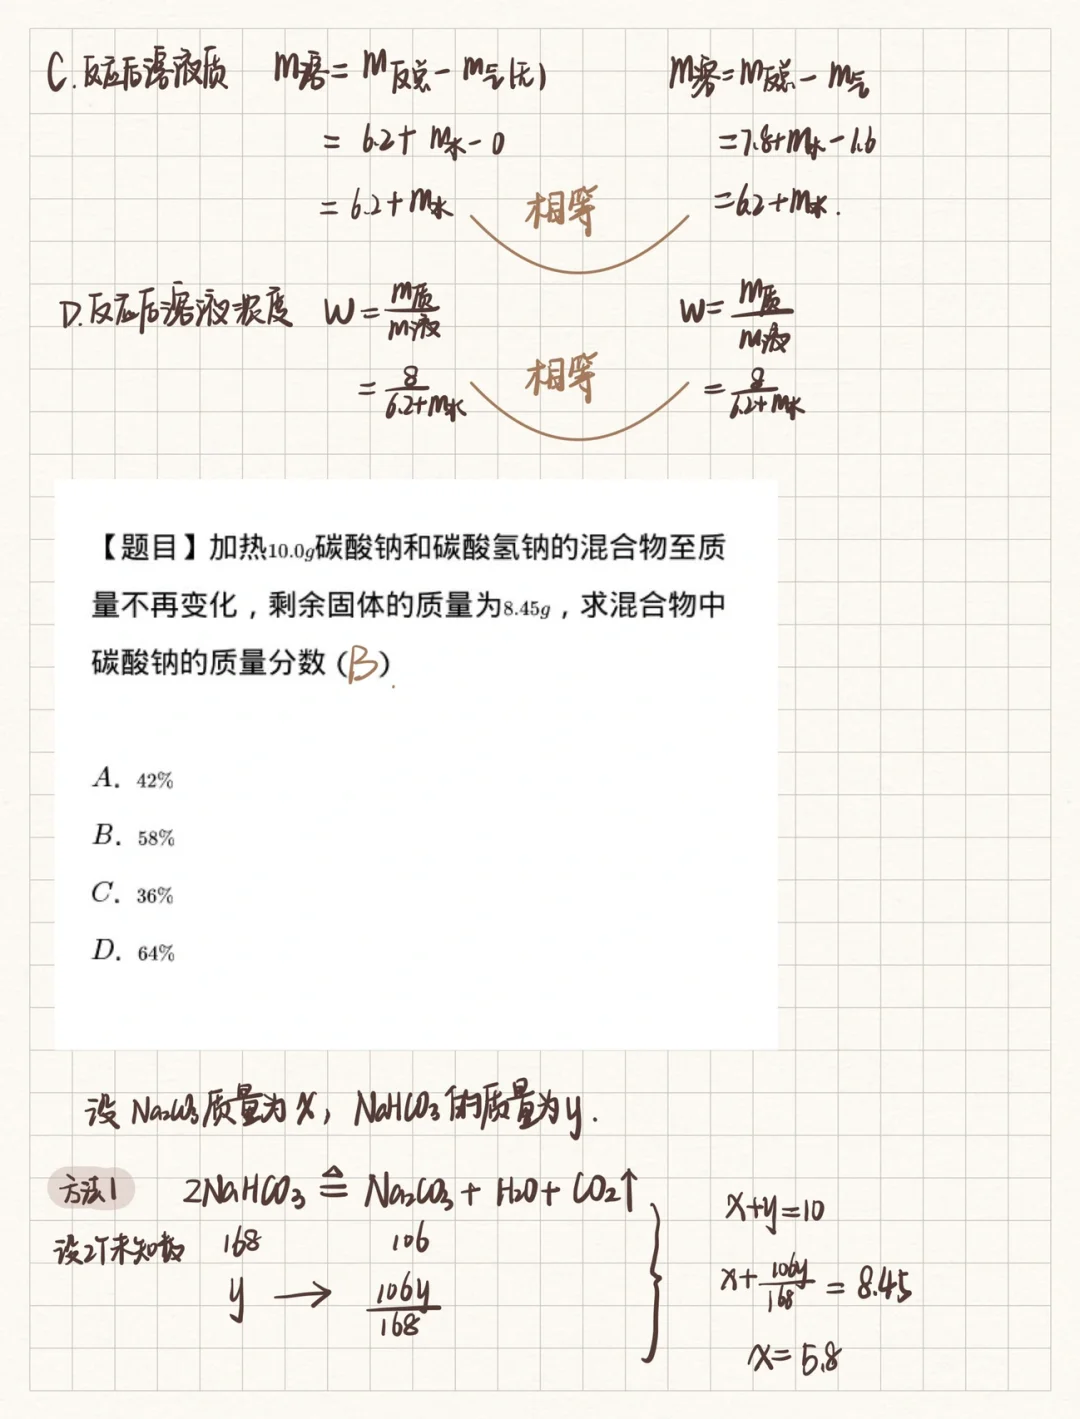 C.反应后溶液质 m溶=m反总-m气(无) m溶=m反总-m气
=6.2+m水-0 =7.8+m水-1.6
=6.2+m水 相等 =6.2+m水.
D.反应后溶液浓度 W=m质/m液 W=m质/m液
=8/(6.2+m水) 相等 =8/(6.2+m水)
【题目】加热10.0g碳酸钠和碳酸氢钠的混合物至质
量不再变化，剩余固体的质量为8.45g，求混合物中
碳酸钠的质量分数（B）
A. 42%
B. 58%
C. 36%
D. 64%
设Na2CO3质量为x，NaHCO3的质量为y.
方法1 2NaHCO3 ≜ Na2CO3+H2O+CO2↑ x+y=10
设2个未知数 168 106
y → 106y/168 x+106y/168=8.45
x=5.8